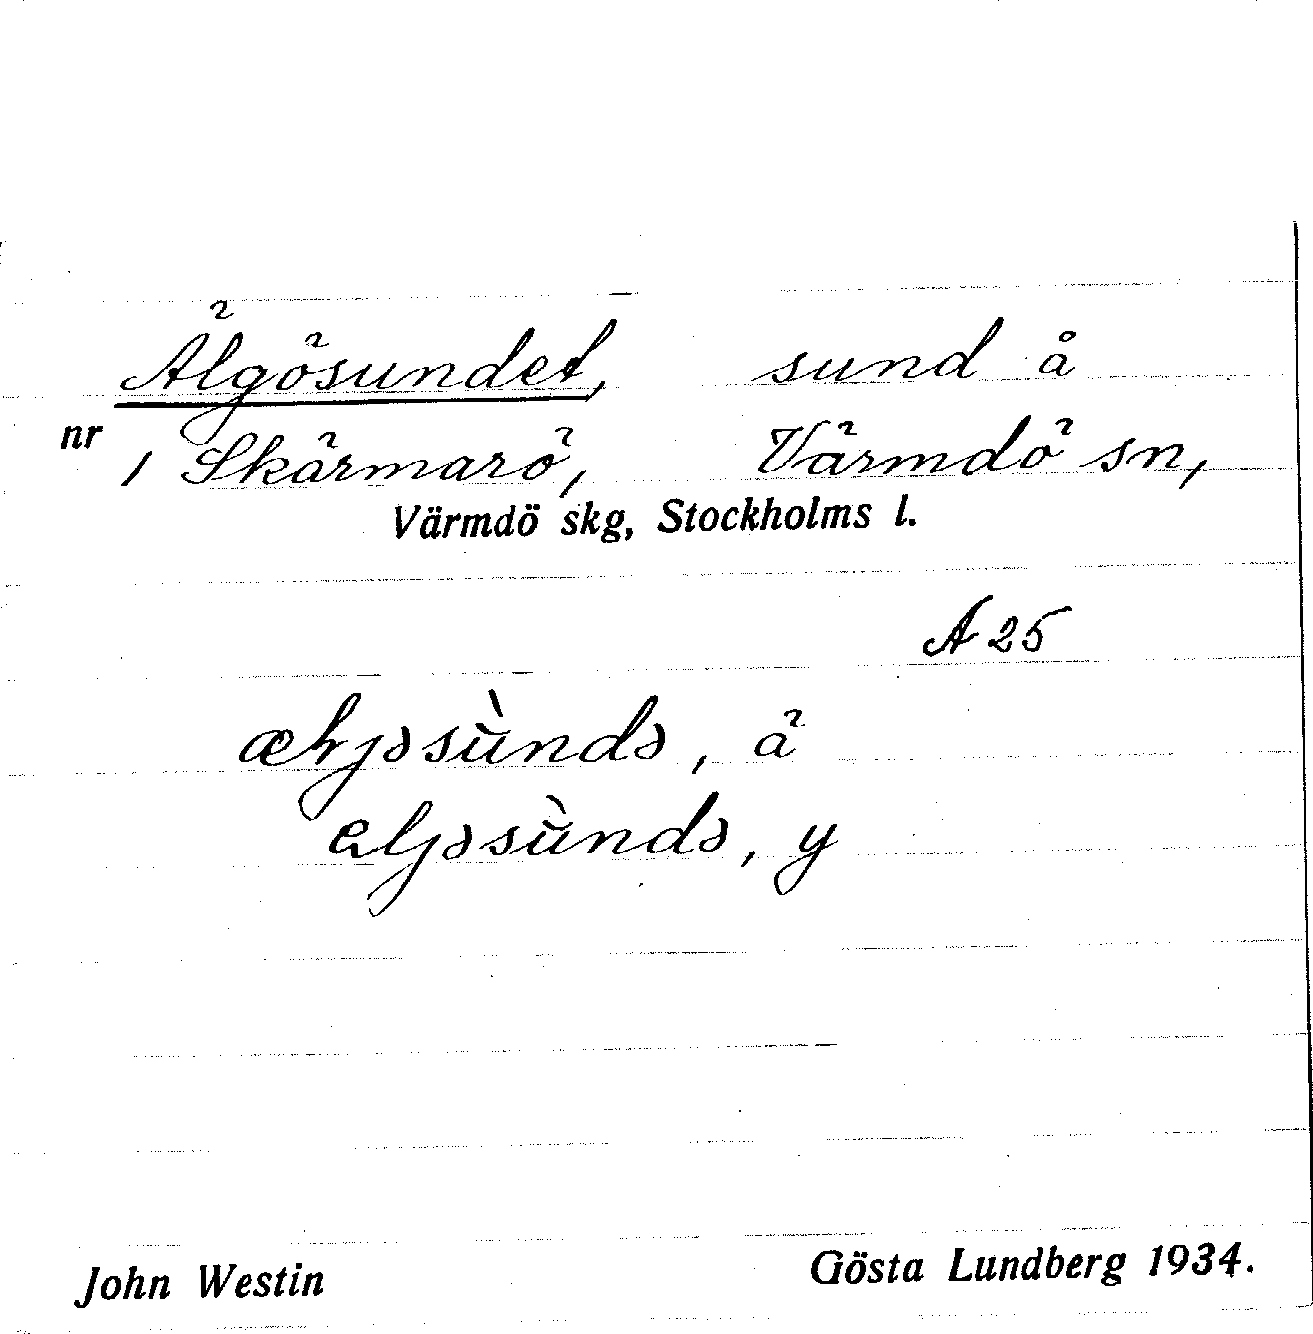 Älgösundet, sund å
nr 1 Skärmarö, Värmdö sn,
Värmdö skg, Stockholms l.
A 25
æljəsùndə, ä
eljəsùndə, y
John Westin Gösta Lundberg 1934.